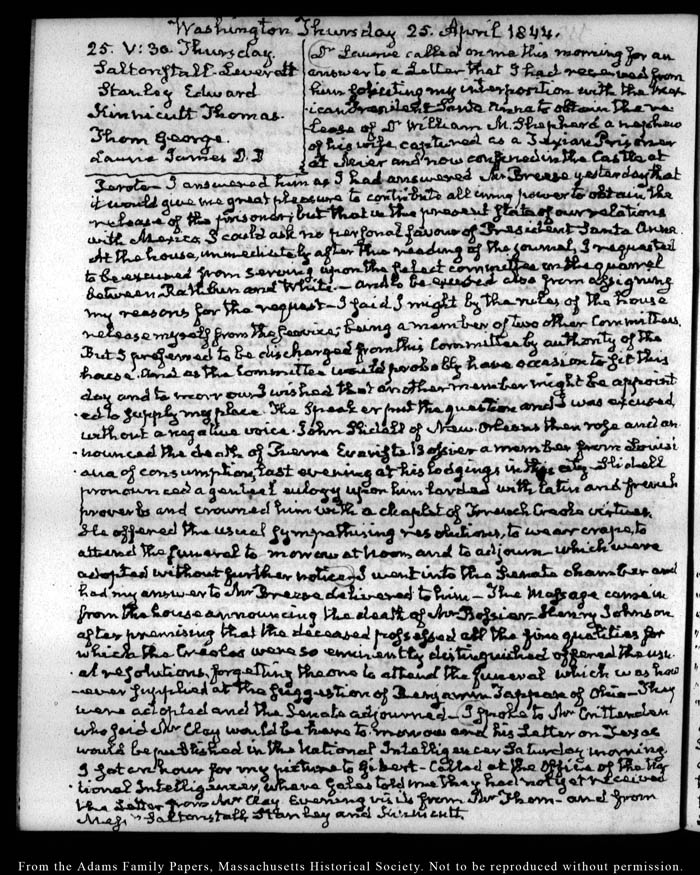 Washington Thursday 25. April 1844.
25. V:30. Thursday.
Saltonstall Leverett
Stanley Edward
Kinnicutt Thomas.
Thom George.
Laurie James D.D
Dr Laurie called on me this morning for an
answer to a Letter that I had received from
him soliciting my interposition with the Mex-
ican President Santa Anna to obtain the re-
lease of Dr William M. Shepherd a nephew
of his wife, captured as a Texian Prisoner
at Meier and now confined in the Castle at
Perote— I answered him as I had answered Mr Breese yesterday that
it would give me great pleasure to contribute all in my power to obtain the
release of the prisoner; but that in the present state of our relations
with Mexico, I could ask no personal favour of President Santa Anna.
At the house, immediately after the reading of the journal, I requested
to be excused from serving upon the select committee on the quarrel
between Rathbun and White— and to be excused also from assigning
my reasons for the request— I said I might by the rules of the house
release myself from the service; being a member of two other Committees.
But I preferred to be discharged from this Committee by authority of the
house. And as the Committee would probably have occasion to sit this
day and to morrow I wished that another member might be appoint
ed to supply my place. The Speaker put the question and I was excused
without a negative voice. John Slidell of New Orleans then rose and an-
nounced the death of Pierre Evariste Bossier a member from Louisi
ana of consumption, last evening at his lodgings in this city. Slidell
pronounced a genteel eulogy upon him larded with latin and french
proverbs and crowned him with a chaplet of French Creole virtues.
He offered the usual sympathising resolutions, to wear crape, to
attend the funeral to morrow at noon and to adjourn— which were
adopted without further notice. I went into the Senate chamber and
had my answer to Mr Breese delivered to him— The Message came in
from the house announcing the death of Mr Bossier— Henry Johnson
after premising that the deceased possessed all the fine qualities for
which the Creoles were so eminently distinguished offered the usu-
al resolutions, forgetting the one to attend the funeral which was how
ever supplied at the suggestion of Benjamin Tappan of Ohio— They
were adopted and the Senate adjourned— I spoke to Mr Crittenden
who said Mr Clay would be here to morrow and his Letter on Texas
would be published in the National Intelligencer Saturday morning.
I sat an hour for my picture to Gibert— Called at the Office of the Na
tional Intelligencer, where Gales told me they had not yet received
the Letter from Mr Clay. Evening visits from Mr Thom— and from
Messrs Saltonstall, Stanley and Kinnicutt.
From the Adams Family Papers, Massachusetts Historical Society. Not to be reproduced without permission.